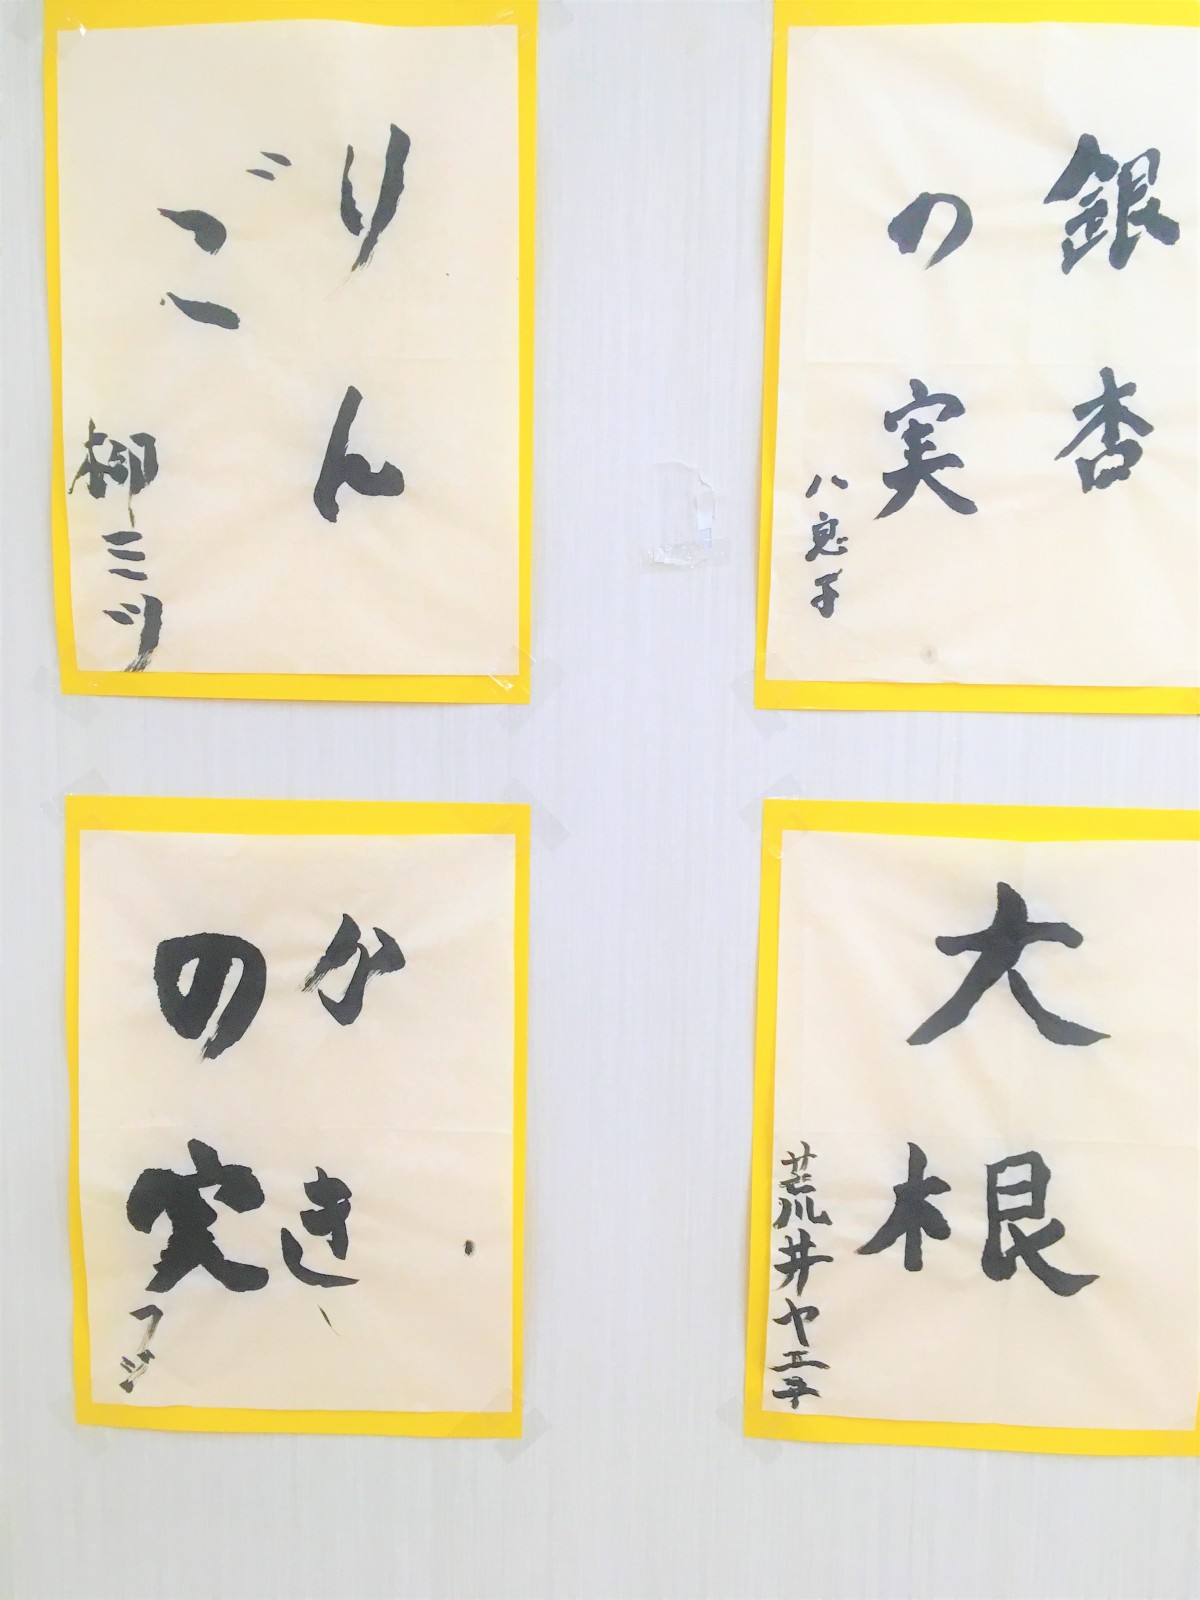 りん
ご
柳ミツ
銀杏
の実
八重子
かき
の実
フジ
大根
荒井ヤエ子